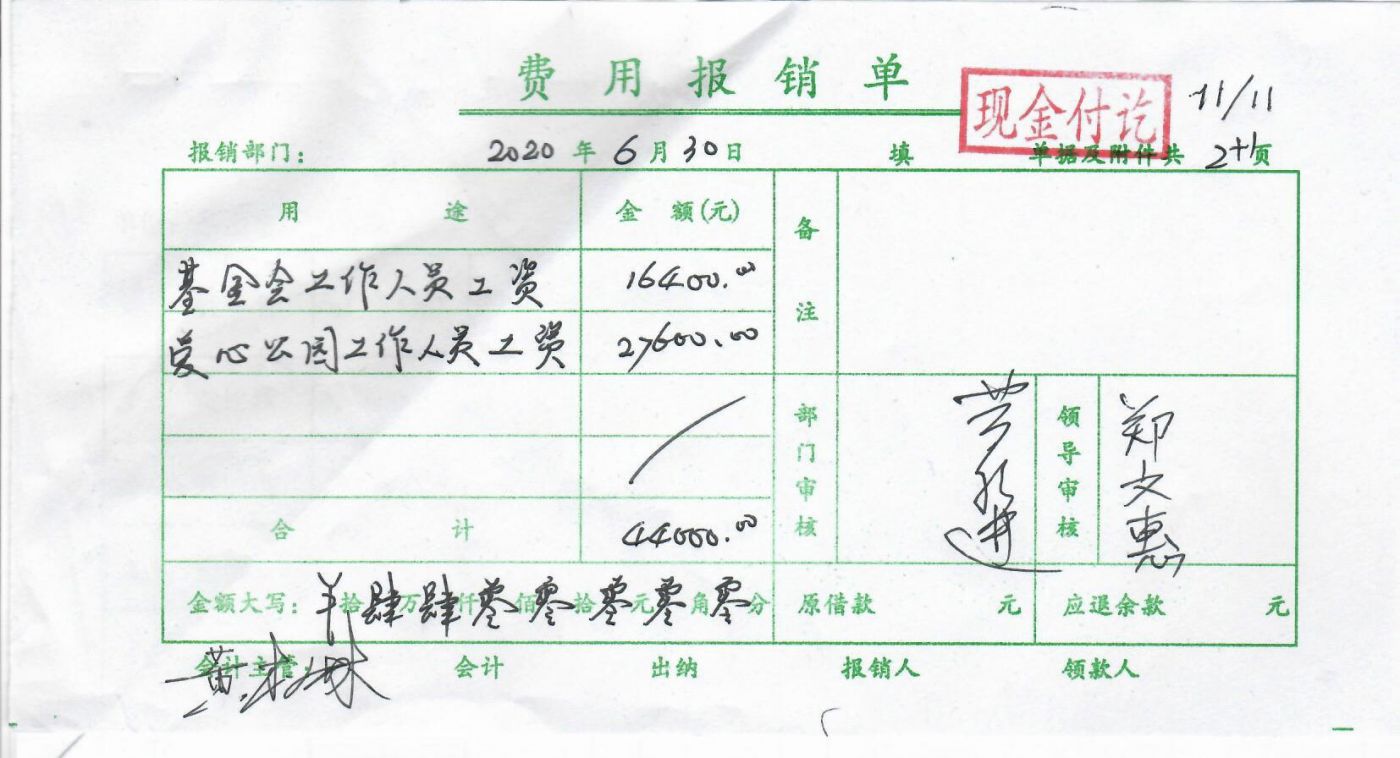 费用报销单
现金付讫
11/11
报销部门： 2020 年 6 月 30 日 填 单据及附件共 2+1 页
用 途 金 额(元) 备注
基金会工作人员工资 16400.00
爱心公园工作人员工资 27600.00
部门审核 领导审核 郑文惠
合 计 44000.00
金额大写： ¥ 拾 肆 万 肆 仟 零 佰 零 拾 零 元 零 角 零 分 原借款 元 应退余款 元
会计主管： 会计 出纳 报销人 领款人